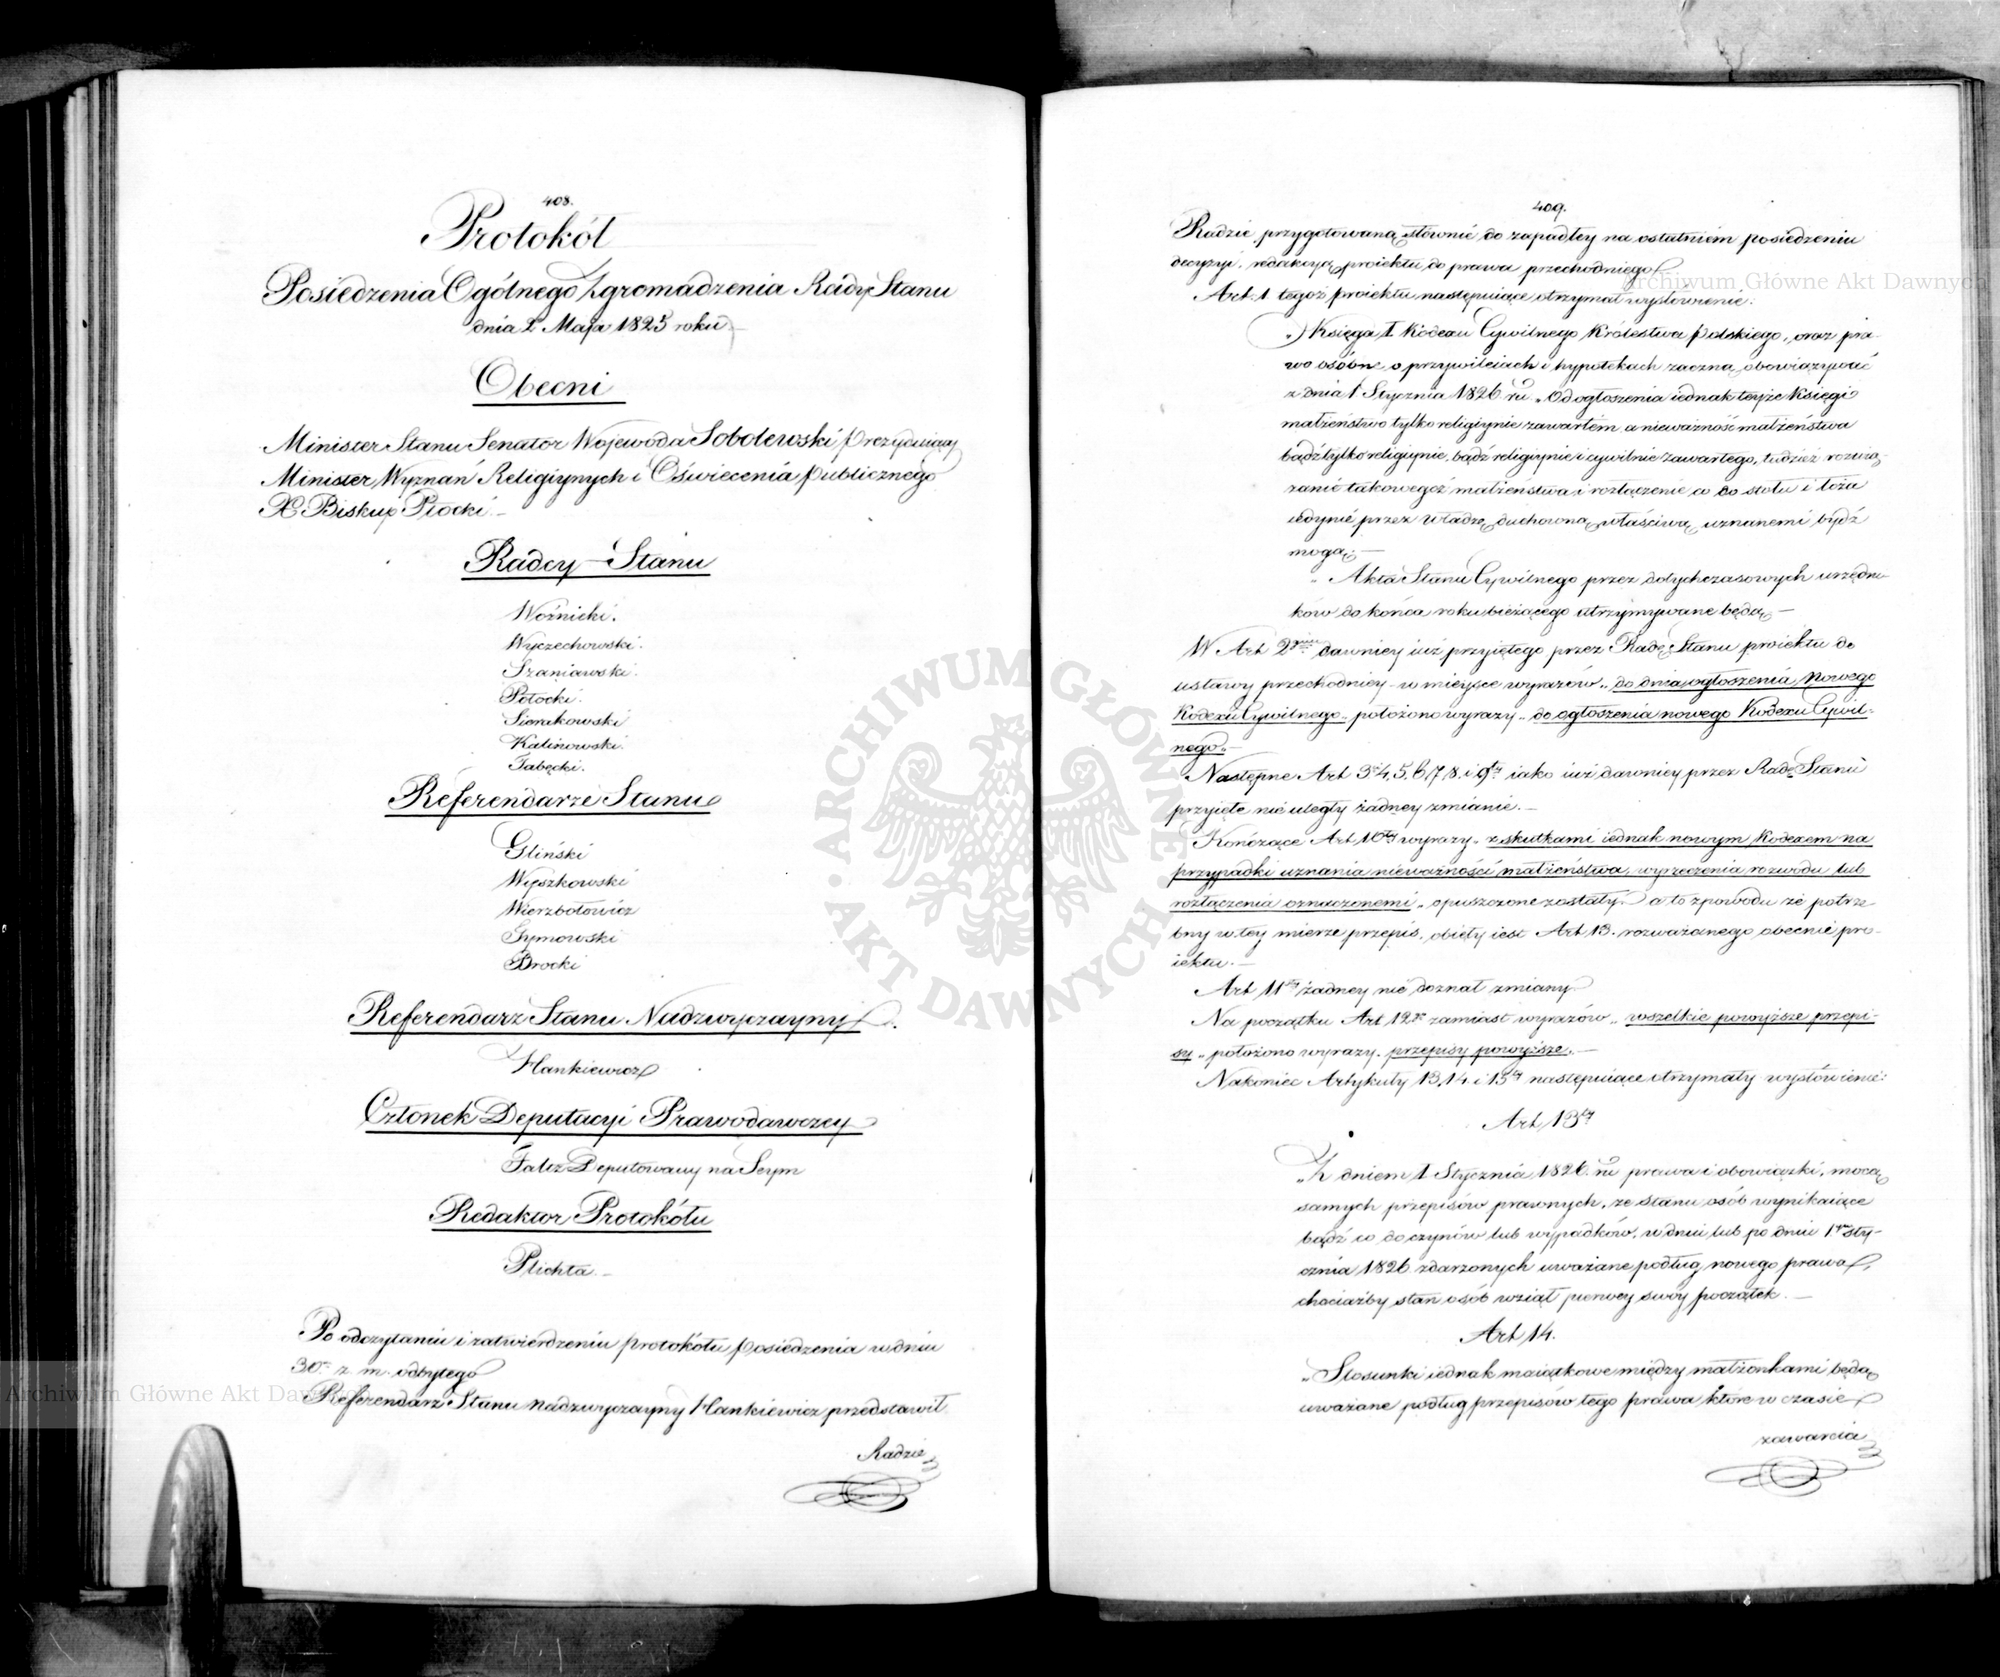 408.
Protokół
Posiedzenia Ogólnego Zgromadzenia Rady Stanu
dnia 2 Maja 1825 roku
Obecni
Minister Stanu Senator Wojewoda Sobolewski prezyduiący
Minister Wyznań Religiynych i Oświecenia publicznego
X Biskup Płocki. —
Radcy Stanu
Woźnicki.
Wyczechowski.
Szaniawski.
Potocki.
Sierakowski
Kalinowski.
Tabęcki.
Referendarze Stanu
Gliński
Węszkowski
Wierzbołowicz
Tymowski
Brocki
Referendarz Stanu Nadzwyczayny
Hankiewicz
Członek Deputacyi Prawodawczey
Faltz Deputowany na Seym
Redaktor Protokółu
Plichta. —
Po odczytaniu i zatwierdzeniu protokółu posiedzenia w dniu
30 z. m. odbytego
Referendarz Stanu nadzwyczayny Hankiewicz przedstawił
Radzie
409.
Radzie przygotowaną stównie do zapadłey na ostatniem posiedzeniu
decyzyi, redakcyą proiektu do prawa przechodniego
Art. 1 tegoż proiektu następuiące otrzymał wysłowienie:
„Księga I Kodexu Cywilnego Królestwa Polskiego, oraz pra-
wo osóbne o przywileiach i hypotekach zaczną obowiązywać
z dnia 1 Stycznia 1826 ru „Od ogłoszenia iednak teyże Księgi
małżeństwo tylko religiynie zawartem, a nieważność małżeństwa
bądź tylko religiynie, bądź religiynie i cywilnie zawartego, tudzież rozwią-
zanie takowegoż małżeństwa i rozłączenie co do stołu i łoża
iedynie przez władzę duchowną właściwą uznanemi bydź
mogą; —
„Akta Stanu Cywilnego przez dotychczasowych urzędni-
ków do końca roku bieżącego utrzymywane będą —
W Art 2gim dawniey iuż przyiętego przez Radę Stanu proiektu do
ustawy przechodniey w mieysce wyrazów „do dnia ogłoszenia Nowego
Kodexu Cywilnego„ położono wyrazy „do ogłoszenia nowego Kodexu Cywil-
nego„ —
Następne Art 3, 4, 5, 6, 7, 8. i 9ty iako iuż dawniey przez Radę Stanu
przyięte nie uległy żadney zmianie. —
Kończące Art 10ty wyrazy „z skutkami iednak nowym Kodexem na
przypadki uznania nieważności małżeństwa, wyrzeczenia rozwodu lub
rozłączenia oznaczonemi„ opuszczone zostały a to z powodu że potrze-
bny w tey mierze przepis, obięty iest Art 13. rozważanego obecnie pro-
iektu. —
Art 11ty żadney nie doznał zmiany
Na początku Art 12go zamiast wyrazów „wszelkie powyższe przepi-
sy„ położono wyrazy. przepisy powyższe. —
Nakoniec Artykuły 13, 14. i 15ty następuiące otrzymały wysłowienie:
Art 13ty
„Z dniem 1 Stycznia 1826. ru prawa i obowiązki, mocą
samych przepisów prawnych, ze stanu osób wynikaiące
bądź co do czynów lub wypadków, w dniu lub po dniu 1ym Sty-
cznia 1826 zdarzonych uważane podług nowego prawa,
chociażby stan osób wziął pierwey swóy początek. —
Art 14.
„Stosunki iednak maiątkowe między małżonkami będą
uważane podług przepisów tego prawa które w czasie
zawarcia
ARCHIWUM GŁÓWNE AKT DAWNYCH
Archiwum Główne Akt Dawnych
Archiwum Główne Akt Dawnych